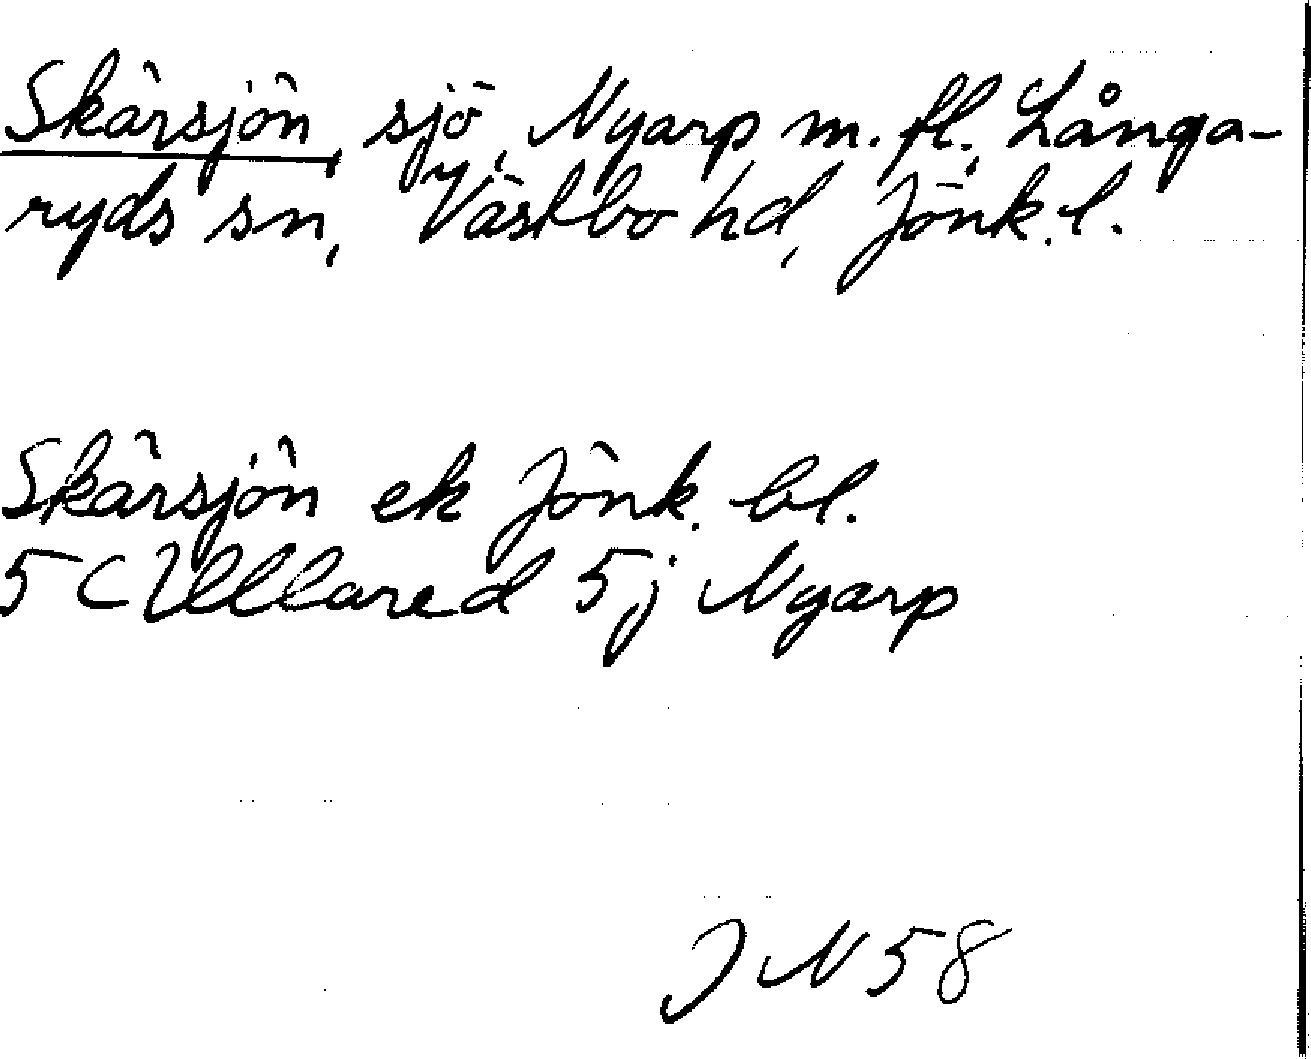 Skärsjön, sjö, Nyarp m. fl., Långa-
ryds sn, Västbo hd, Jönk. l.
Skärsjön ek Jönk. bl.
5 C Ullared 5 j Nyarp
J N 58